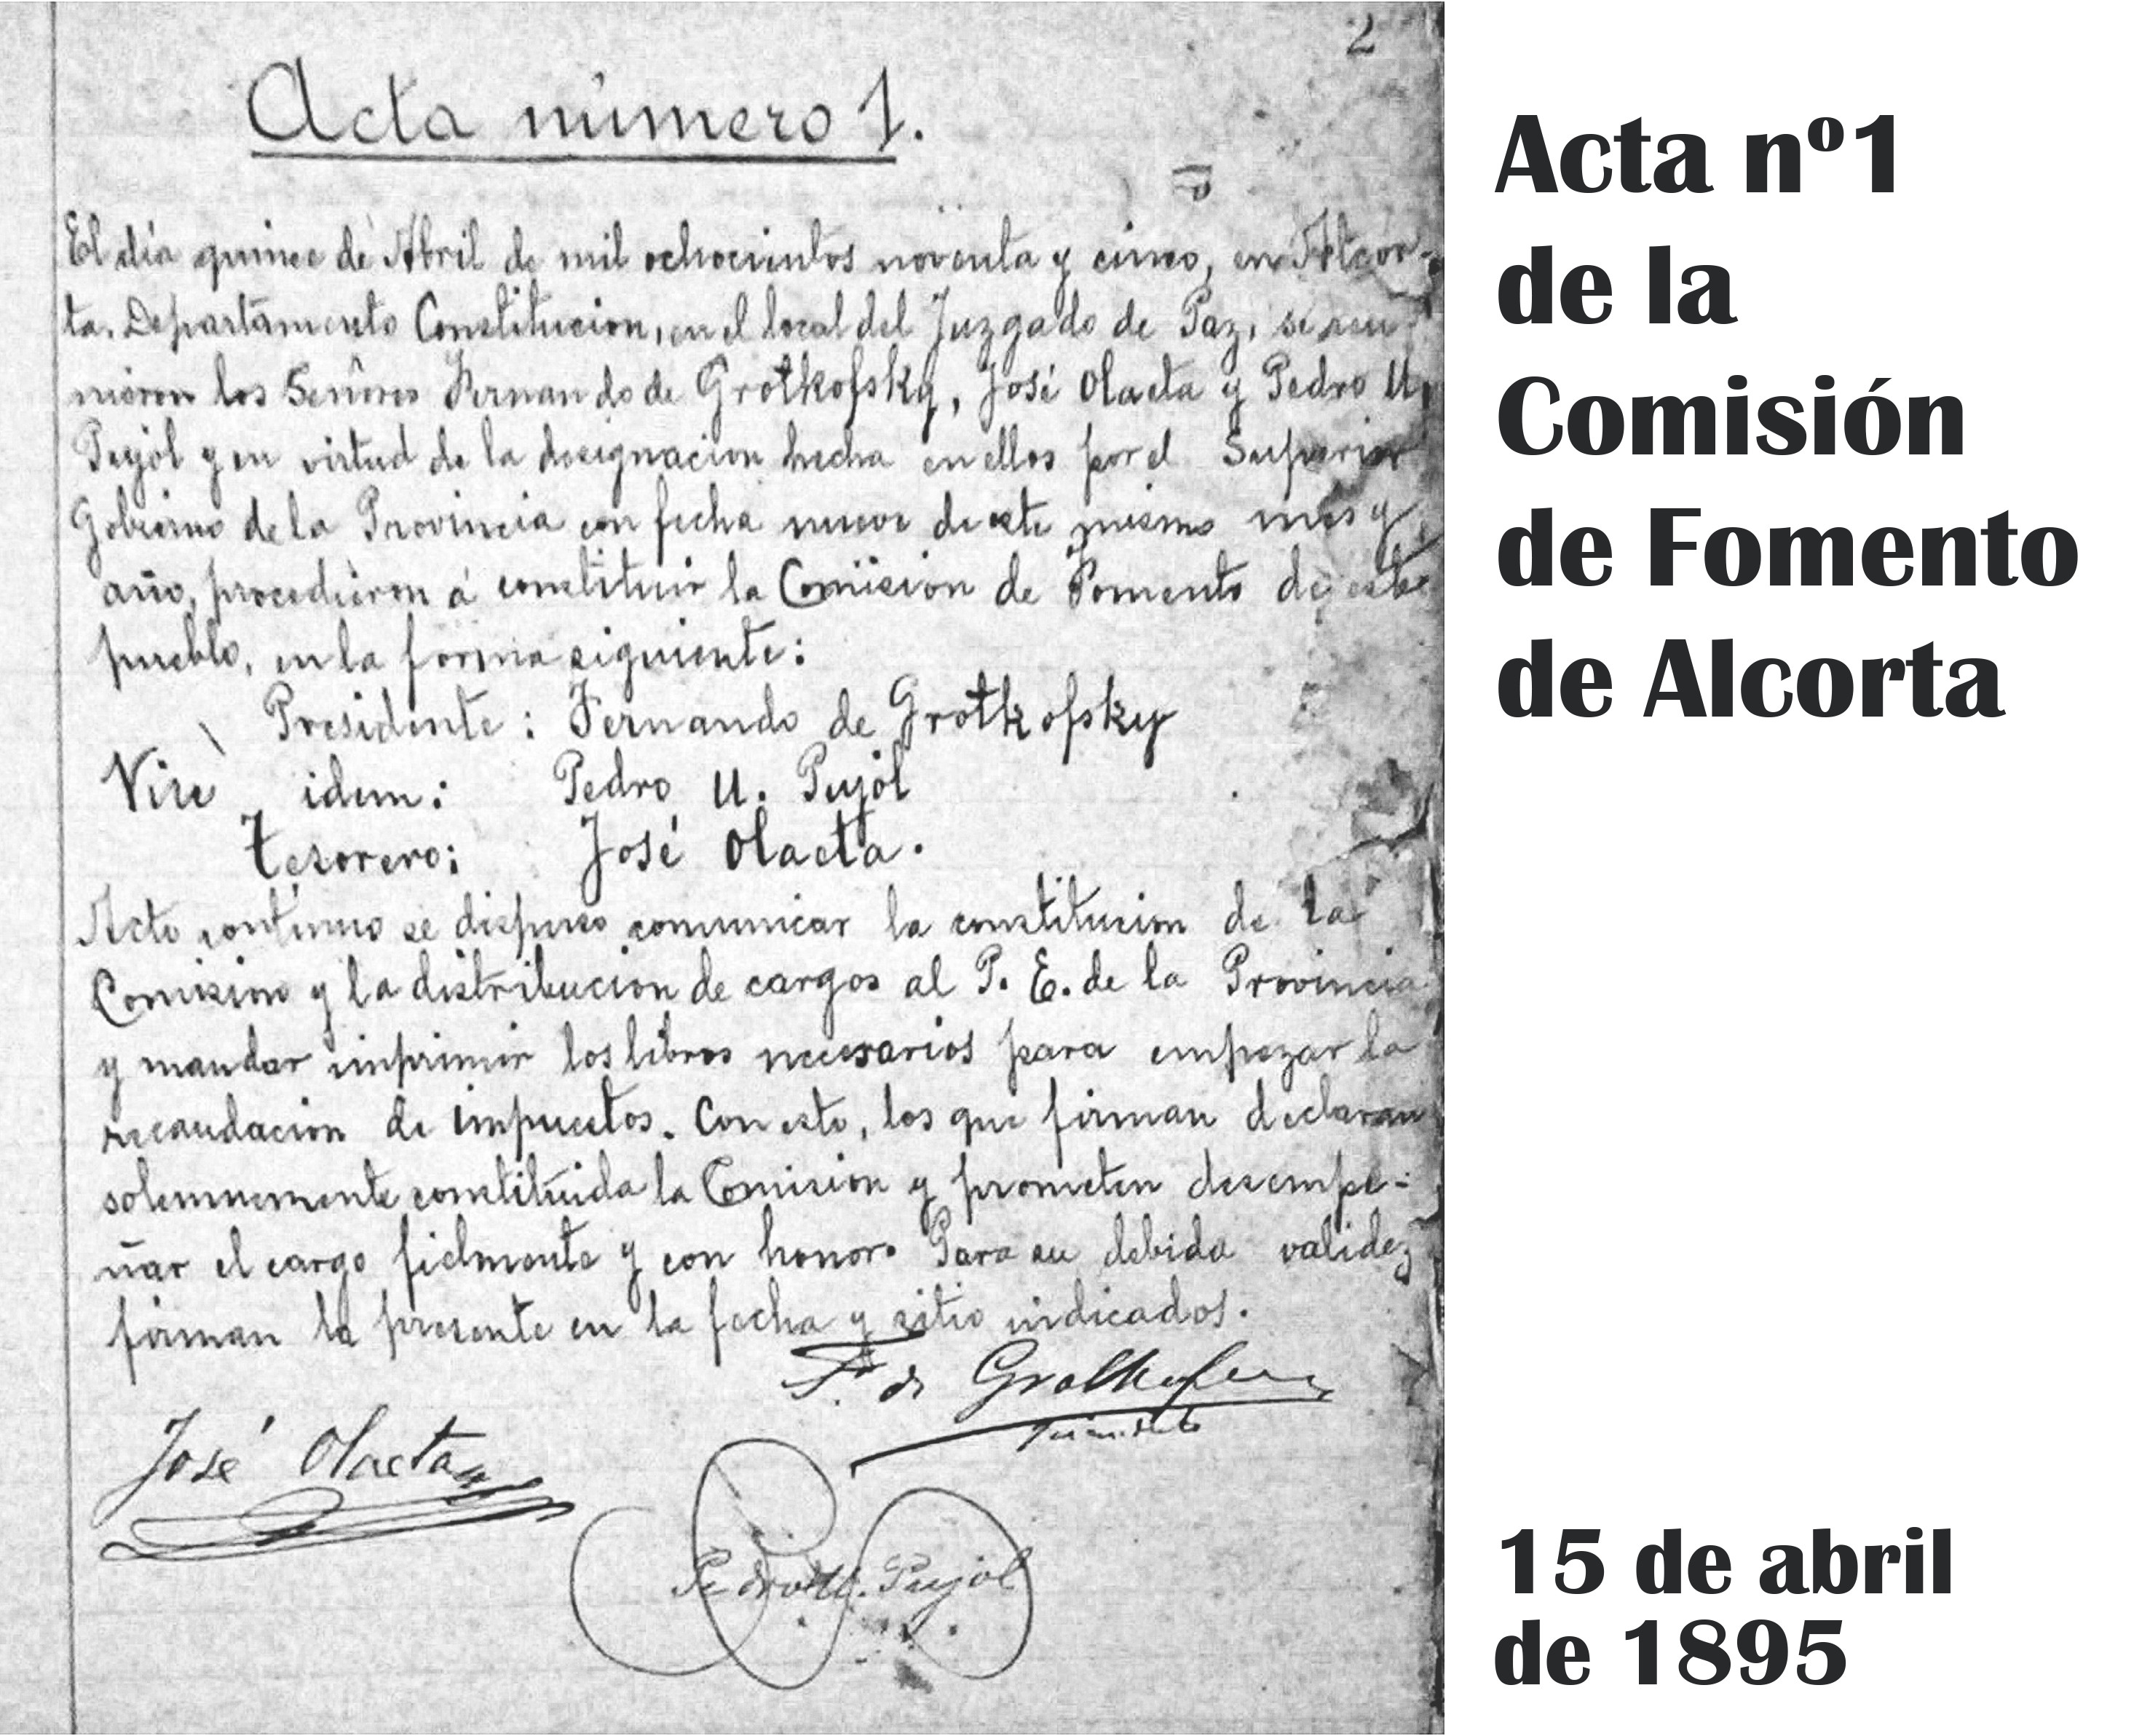 2
Acta número 1.
El día quince de Abril de mil ochocientos noventa y cinco, en Alcor-
ta. Departamento Constitucion, en el local del Juzgado de Paz, se reu-
nieron los Señores Fernando de Grotkofsky, José Olaeta y Pedro U.
Pujól y en virtud de la designacion hecha en ellos por el Superior
Gobierno de la Provincia con fecha nueve de este mismo mes y
año, procedieron á constituir la Comision de Fomento de este
pueblo, en la forma siguiente:
Presidente: Fernando de Grotkofsky
Vice idem: Pedro U. Pujól
Tesorero: José Olaeta.
Acto continuo se dispuso comunicar la constitucion de la
Comision y la distribucion de cargos al P. E. de la Provincia
y mandar imprimir los libros necesarios para empezar la
recaudacion de impuestos. Con esto, los que firman declaran
solemnemente constituida la Comision y prometen desempe-
ñar el cargo fielmente y con honor. Para su debida validez
firman la presente en la fecha y sitio indicados.
F. de
José Olaeta
Pedro U. Pujól
Acta nº1
de la
Comisión
de Fomento
de Alcorta
15 de abril
de 1895